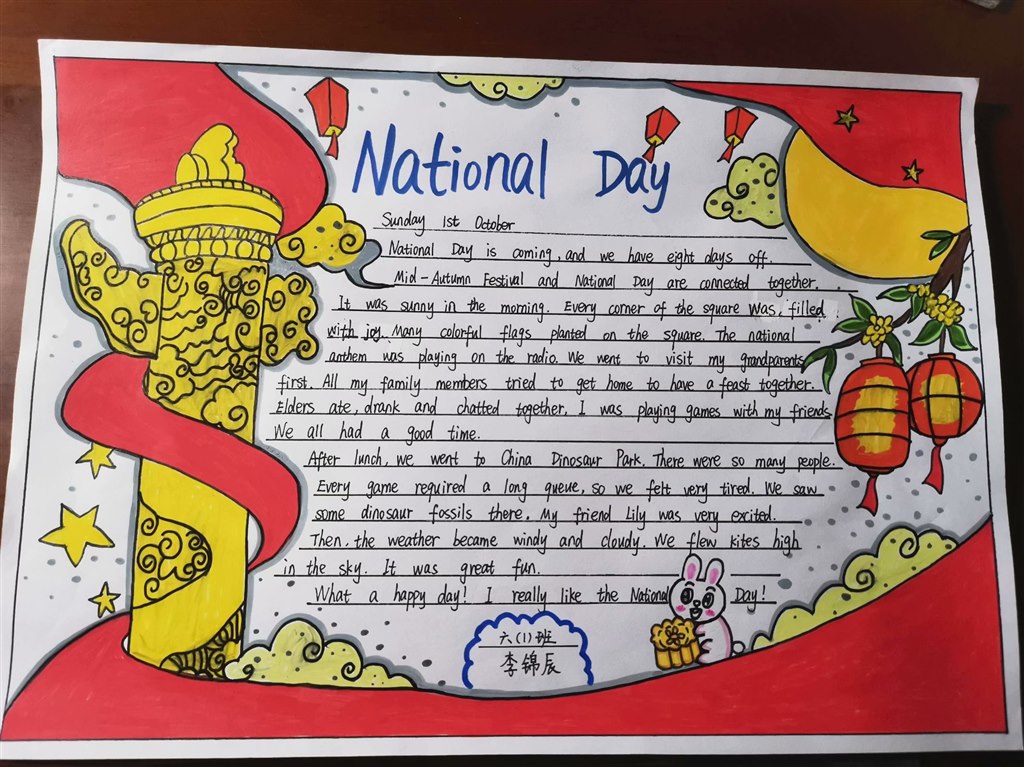 National Day
Sunday 1st October
National Day is coming, and we have eight days off.
Mid-Autumn Festival and National Day are connected together.
It was sunny in the morning. Every corner of the square was filled
with joy. Many colorful flags planted on the square. The national
anthem was playing on the radio. We went to visit my grandparents
first. All my family members tried to get home to have a feast together.
Elders ate, drank and chatted together. I was playing games with my friends.
We all had a good time.
After lunch, we went to China Dinosaur Park. There were so many people.
Every game required a long queue, so we felt very tired. We saw
some dinosaur fossils there. My friend Lily was very exited.
Then, the weather became windy and cloudy. We flew kites high
in the sky. It was great fun.
What a happy day! I really like the National Day!
六(1)班
李锦辰